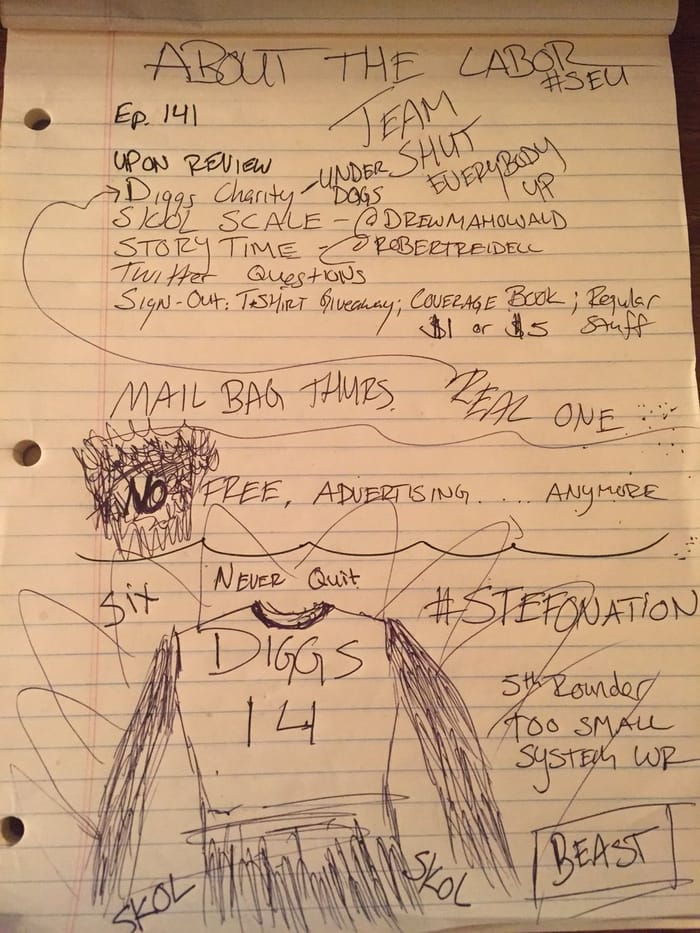 ABOUT THE LABOR
#SEU
Ep. 141
TEAM
SHUT
EVERYBODY
UP
UPON REVIEW
Diggs Charity - UNDER
DOGS
SKOL SCALE - @DREWMAHOWALD
STORY TIME - @ROBERTREIDELL
Twitter Questions
Sign-Out: T-SHIRT Giveaway; COVERAGE BOOK; Regular
$1 or $5 Stuff
MAIL BAG THURS. REAL ONE
NO FREE, ADVERTISING..... ANYMORE
Six
NEVER Quit
#STEFONATION
DIGGS
14
5th Rounder
TOO SMALL
SYSTEM WR
BEAST
SKOL
SKOL